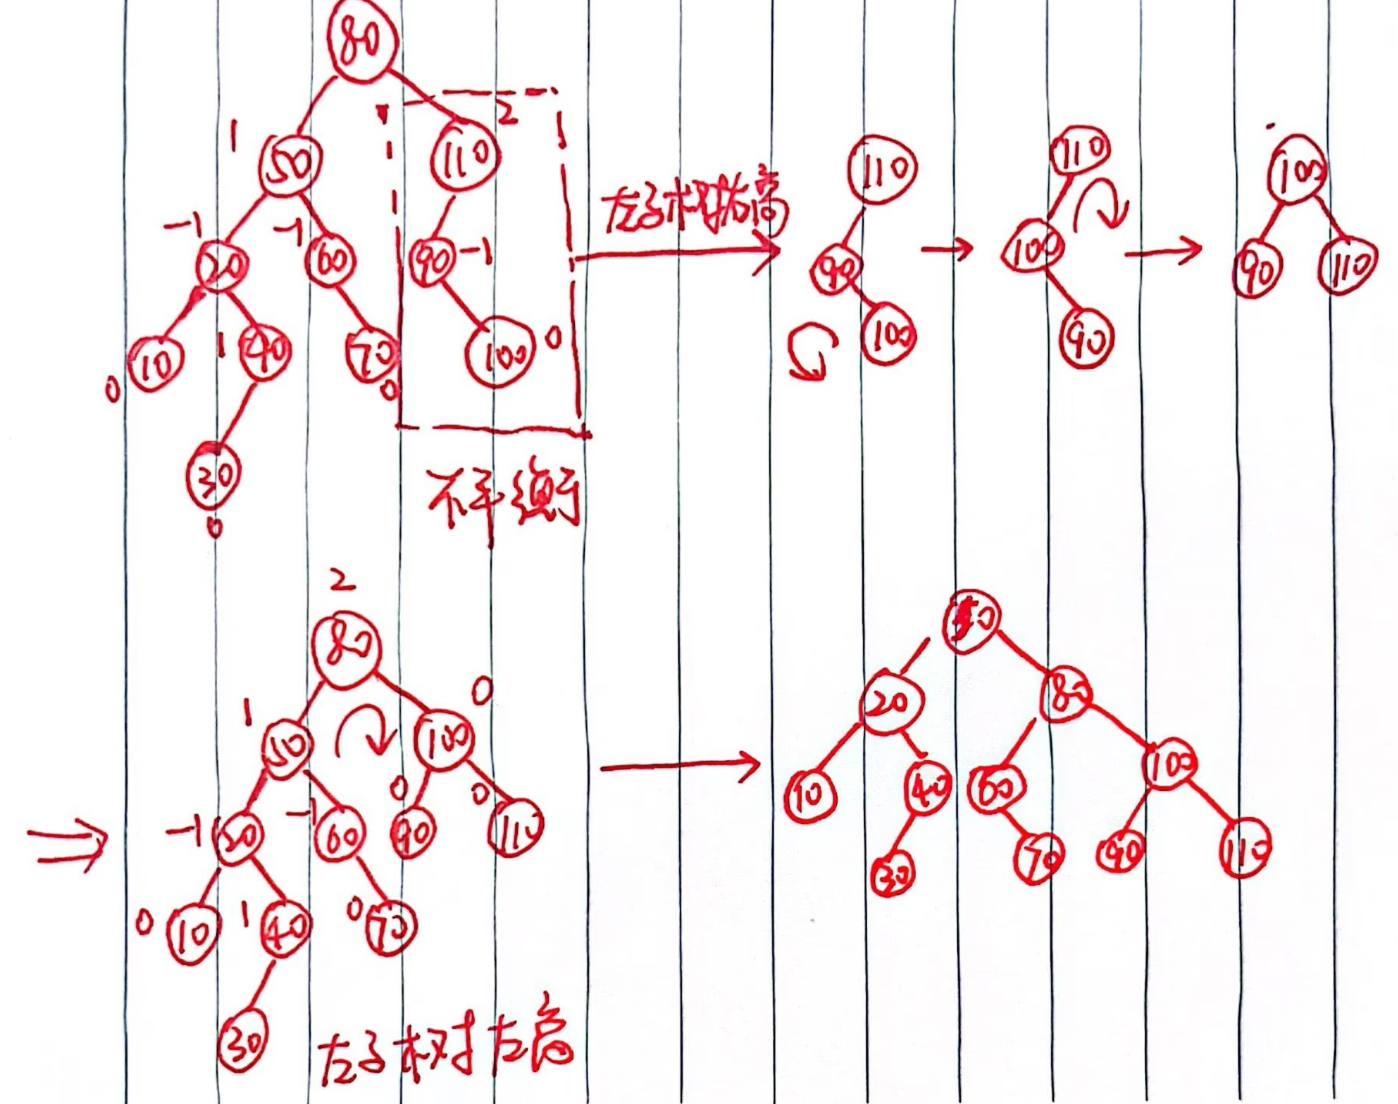 80
1 50 110 2
-1 20 -1 60 90 -1
0 10 1 40 70 0 100 0
30
0
不平衡
左子树右高
110
90
100
110
100
90
100
90 110
2
80
1 50 100 0
-1 20 -1 60 0 90 0 110
0 10 1 40 0 70
30
左子树左高
50
20 80
10 40 60 100
30 70 90 110